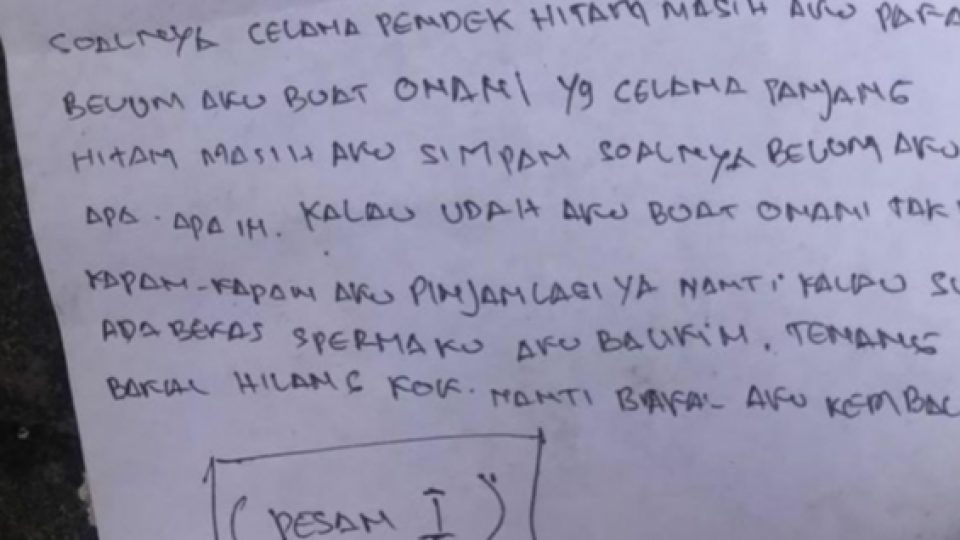 SOALNYA CELANA PENDEK HITAM MASIH AKU
BELUM AKU BUAT ONANI Yg CELANA PANJANG
HITAM MASIH AKU SIMPAN SOALNYA BELUM AKU
APA-APA IH. KALAU UDAH AKU BUAT ONANI TAK
KAPAN-KAPAN AKU PINJAM LAGI YA NANTI KALAU
ADA BEKAS SPERMAKU AKU BALIKIN. TENANG
BAKAL HILANG KOK. NANTI BAKAL AKU
(PESAN I)